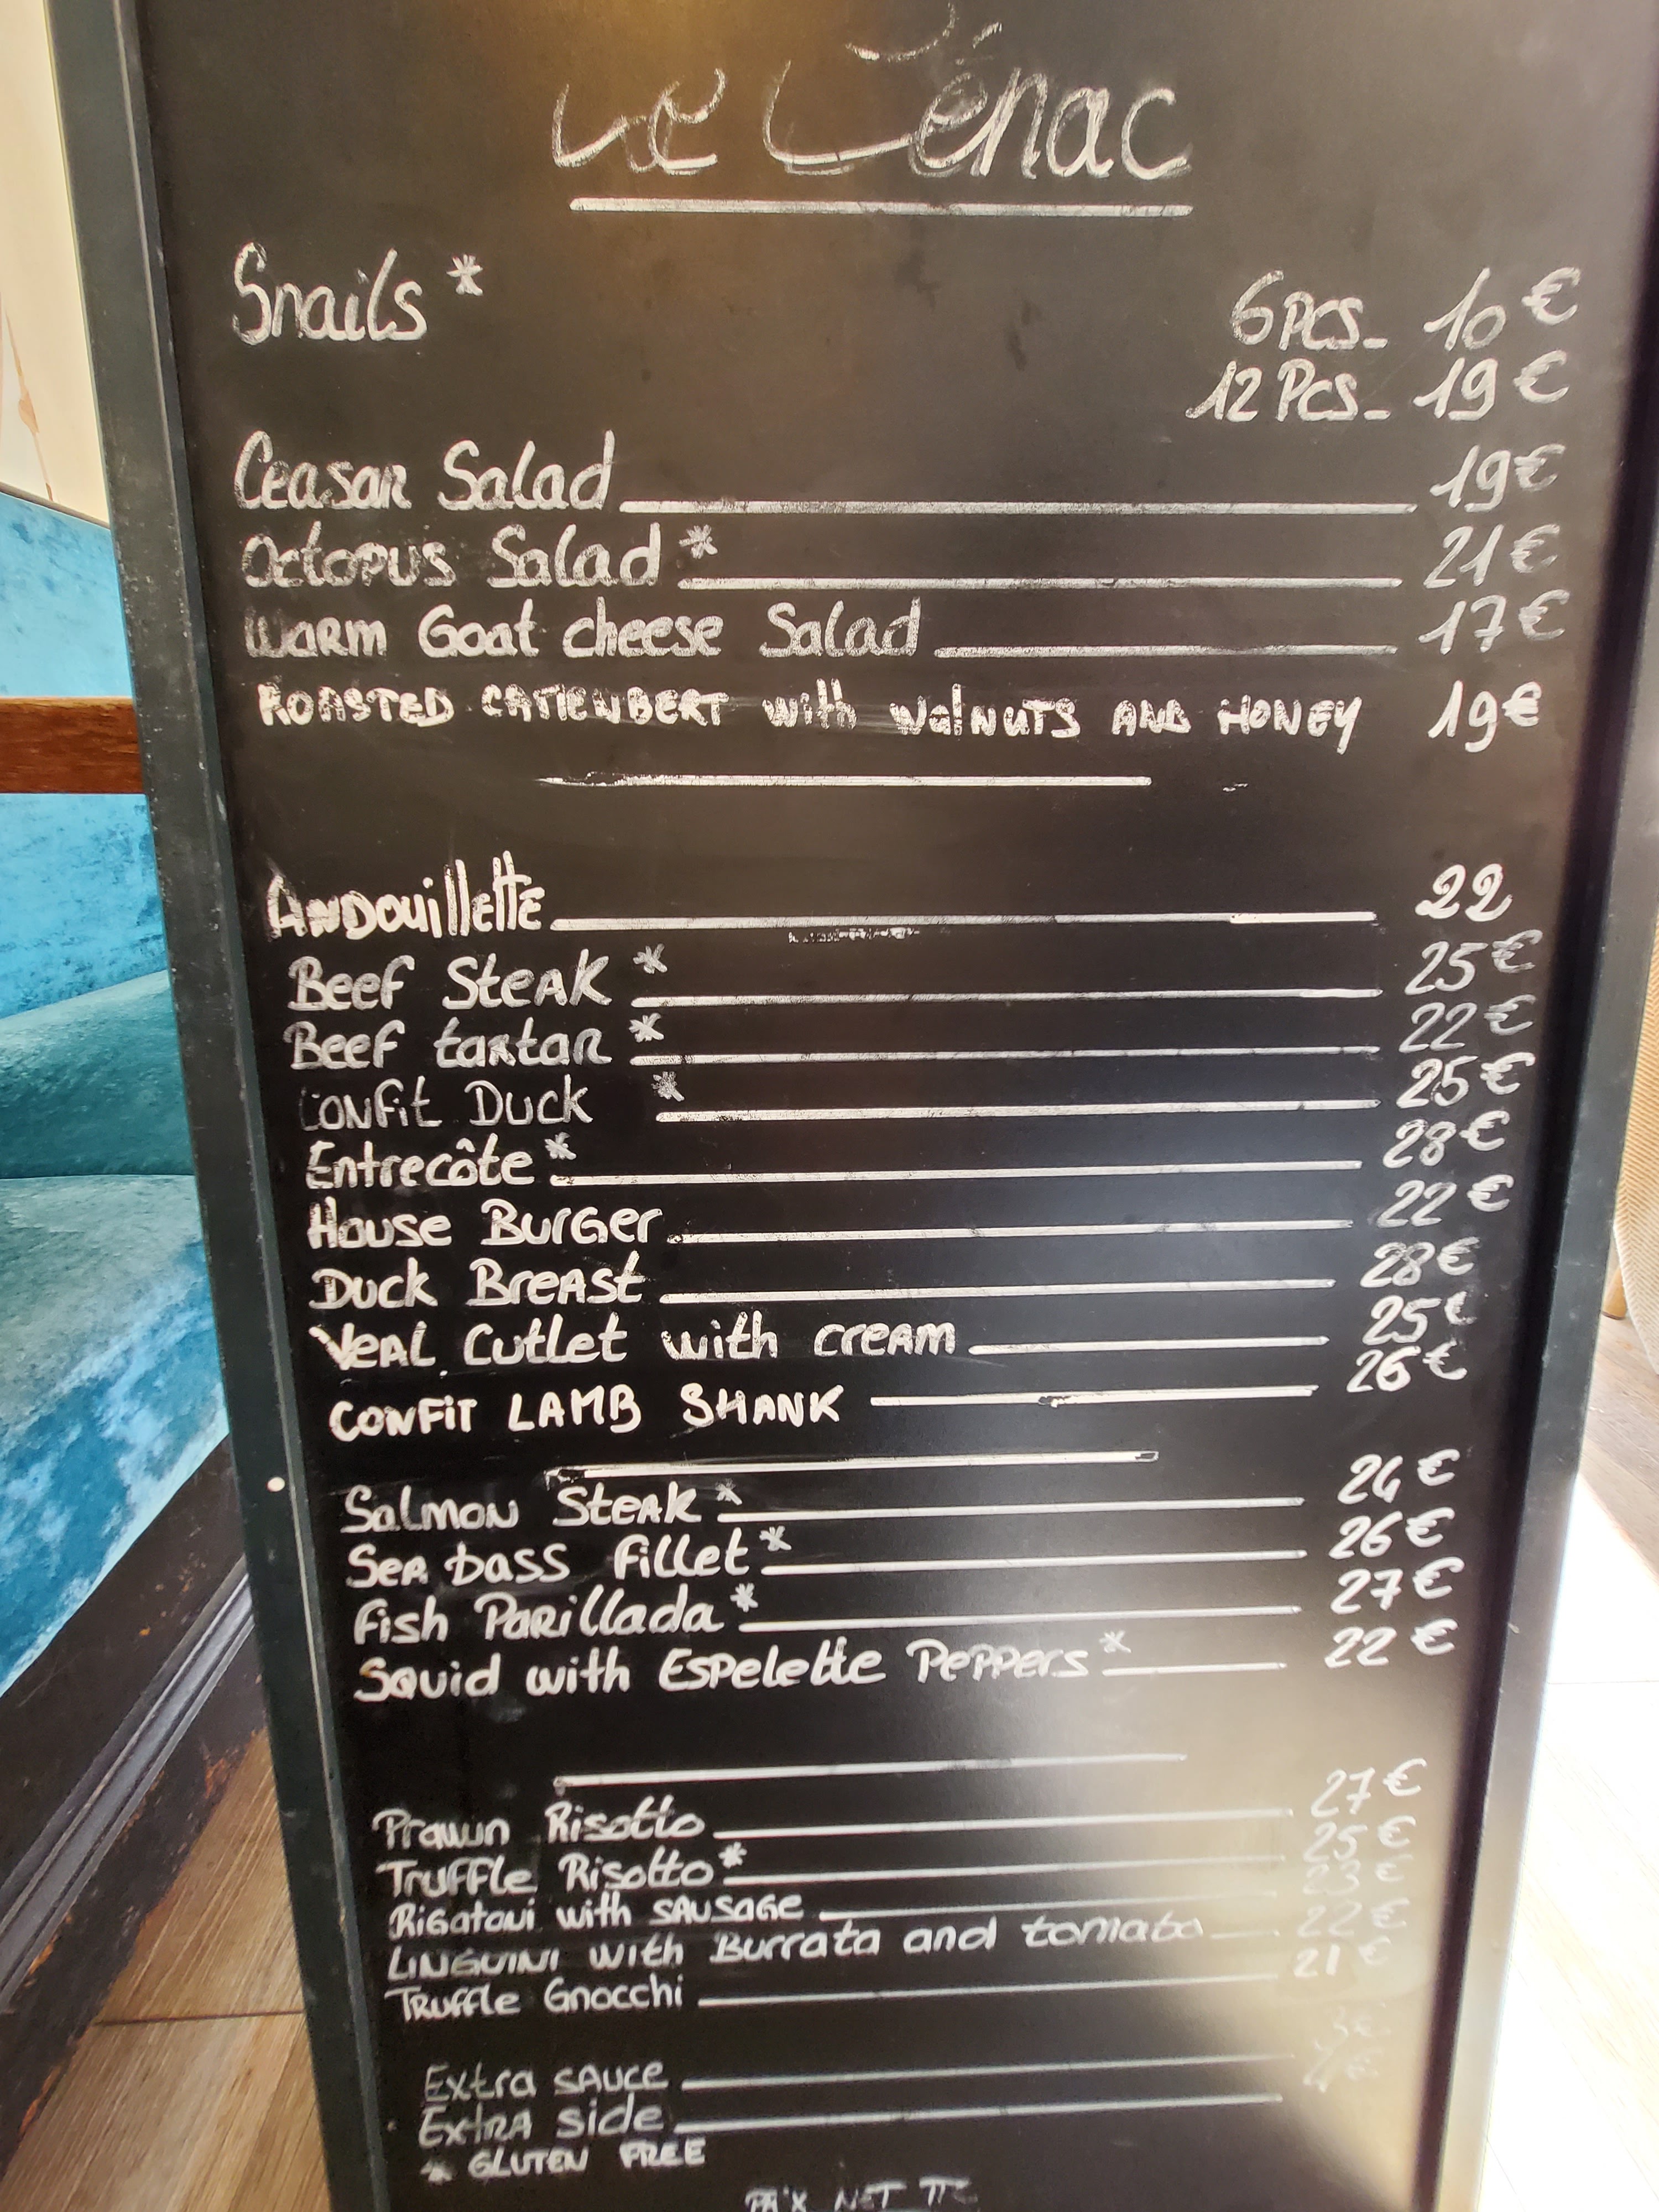 Le Cénac
Snails * 6 PCS_ 10 €
12 PCS_ 19 €
Ceasar Salad 19 €
Octopus Salad * 21 €
Warm Goat cheese Salad 17 €
ROASTED CAMEMBERT with WalNUTS AND HONEY 19 €
ANDouillette 22
Beef Steak * 25 €
Beef tartar * 22 €
Confit Duck * 25 €
Entrecôte * 28 €
House Burger 22 €
Duck Breast 28 €
Veal Cutlet with cream 25 €
CONFIT LAMB SHANK 26 €
Salmon Steak * 24 €
Sea bass fillet * 26 €
Fish Parillada * 27 €
Squid with Espelette Peppers * 22 €
Prawn Risotto 27 €
Truffle Risotto * 25 €
Rigatoni with sausage 23 €
LINGUINI with Burrata and tomato 22 €
Truffle Gnocchi 21 €
Extra sauce 3 €
Extra side
* GLUTEN FREE
NET TTC